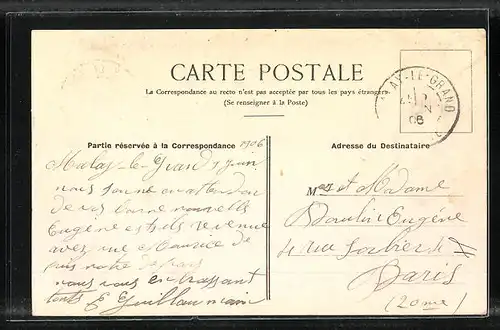 CARTE POSTALE
La Correspondance au recto n'est pas acceptée par tous les pays étrangers
(Se renseigner à la Poste)
AY-LE-GRAND
08
Partie réservée à la Correspondance 1906
Malay-le-Grand juin
nous somme en
de vos bonne nouvelle
Eugène est revenue
avez vue Maurice de
puis notre
nous vous embrassant
touts E Guillaumain
Adresse du Destinataire
Mr et Madame
Moulin Eugène
4 rue Sorbier
Paris
(20me)